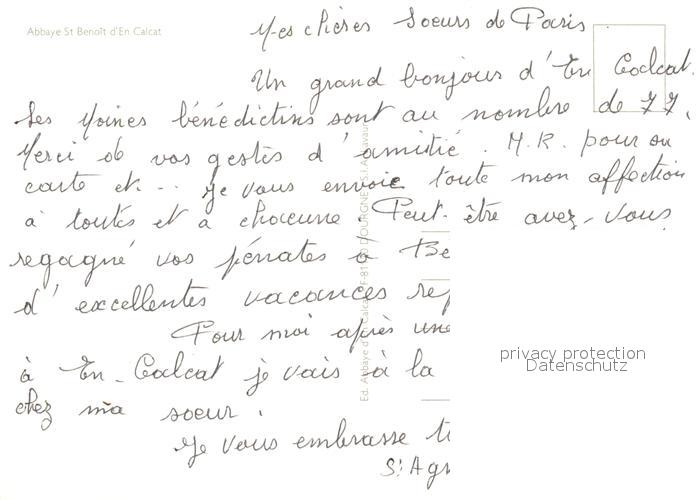 Abbaye St Benoît d'En Calcat
Mes chères Soeurs de Paris
Un grand bonjour d'En Calcat.
Les Moines bénédictins sont au nombre de 77.
Merci de vos gestes d'amitié. M.R. pour sa
carte et... Je vous envoie toute mon affection
à toutes et à chacune. Peut-être avez-vous
regagné vos pénates à Be
d'excellentes vacances rep
Pour moi après une
à En-Calcat je vais à la
chez ma soeur.
Je vous embrasse t
Sr Agn
Ed. Abbaye d'En Calcat F-81110 DOURGNE
privacy protection
Datenschutz